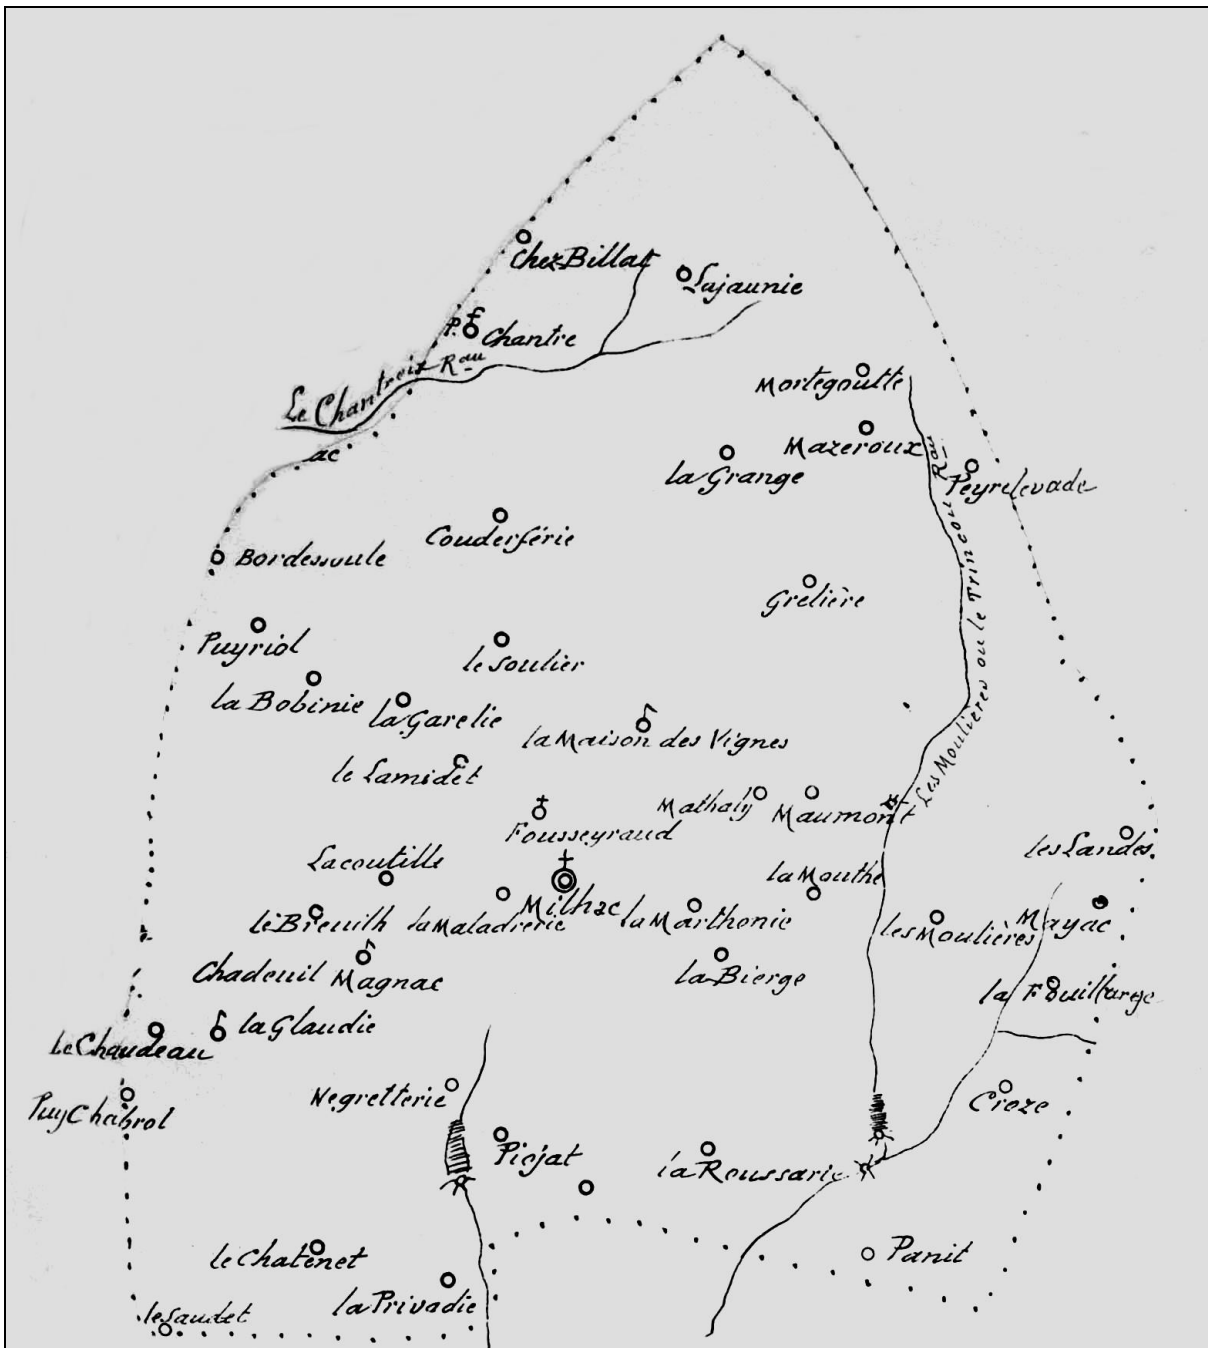 Chez-Billat
Lajaunie
P. Chantre
Le Chantroix R^au
Mortegoutte
ac
Mazeroux
la Grange
Peyrelevade
Couderférie
Bordessoule
Grelière
Les Moulières ou le Trincou R^au
Puyriol
le Soulier
la Bobinie
la Garelie
la Maison des Vignes
le Lamidet
Mathaly
Maumont
Fousseyraud
les Landes
Lacoutille
la Mouthe
Milhac
le Breuilh
la Maladrerie
la Marthonie
les Moulières
Mayac
Chadeuil
Magnac
la Bierge
la Fouillarge
la Glaudie
le Chaudeau
Negretterie
Croze
Puy Chabrol
Piéjat
la Roussarie
le Chatenet
Panit
la Privadie
le Saudet